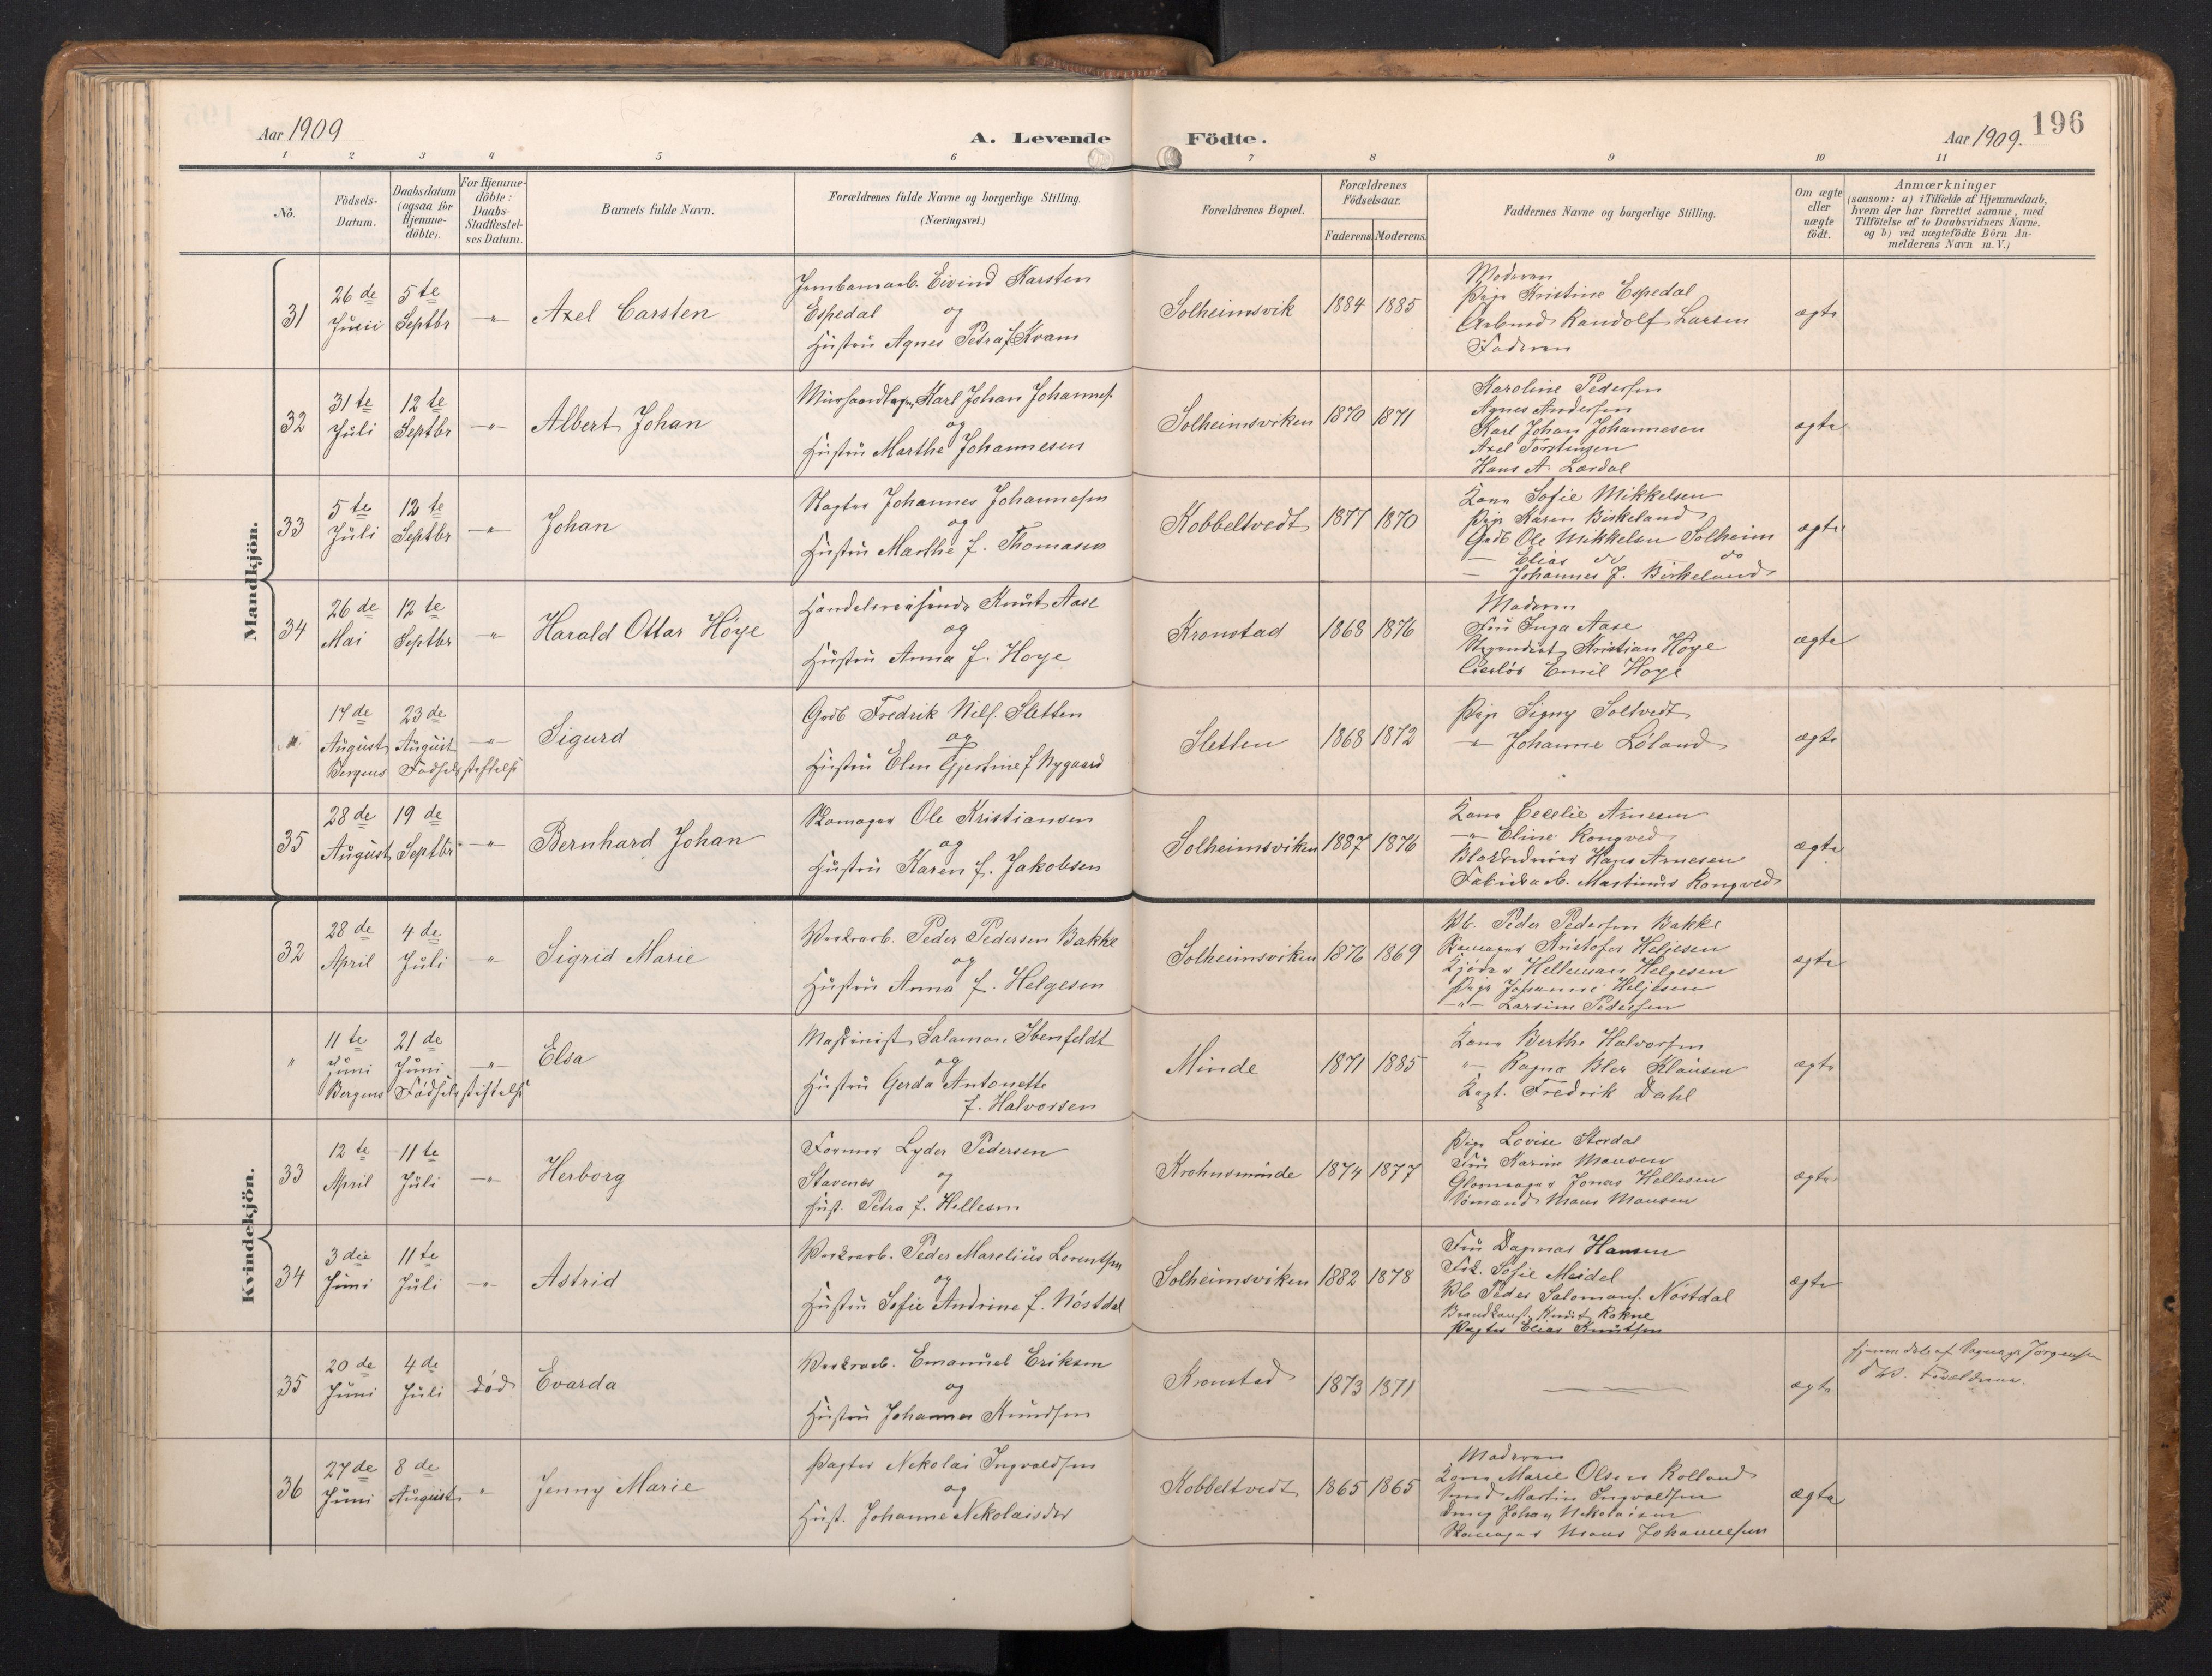 Aar 1909
A. Levende Födte.
Aar 1909.
196
1 2 3 4 5 6 7 8 9 10 11
No.
Födsels-
Datum.
Daabsdatum
(ogsaa for
Hjemme-
döbte).
For Hjemme-
döbte:
Daabs-
Stadfæstel-
ses Datum.
Barnets fulde Navn.
Forældrenes fulde Navne og borgerlige Stilling.
(Næringsvei.)
Forældrenes Bopæl.
Forældrenes
Födselsaar.
Faderens. Moderens.
Faddernes Navne og borgerlige Stilling.
Om ægte
eller
uægte
födt.
Anmærkninger
(saasom: a) i Tilfælde af Hjemmedaab,
hvem der har forrettet samme, med
Tilföielse af to Daabsvidners Navne.
og b) ved uægtefödte Börn An-
melderens Navn m. V.)
Mandkjön.
31
26 de
Junii
5 te
Septbr
"
Axel Carsten
Jernbanearb. Eivind Karsten
Espedal og
Hustru Agnes Petra f. Kvam
Solheimsvik
1884 1885
Moderen
Pige Kristine Espedal
Randolf Larsen
Faderen
ægte
32
31 te
Juli
12 te
Septbr
"
Albert Johan
Murhandlager Karl Johan Johannes.
og
Hustru Marthe Johannesen
Solheimsviken
1870 1871
Karoline Pedersen
Agnes Andersen
Karl Johan Johannesen
Axel Torstensen
Hans A. Lærdal
ægte
33
5 te
Juli
12 te
Septbr
"
Johan
Slagter Johannes Johannesen
og
Hustru Marthe f. Thomasen
Kobbeltvedt
1877 1870
Kone Sofie Mikkelsen
Pige Karen Birkeland
Gadb Ole Mikkelsen Solheim
— Elias do do
— Johannes J. Birkeland
ægte
34
26 de
Mai
12 te
Septbr
"
Harald Ottar Höye
Handelsreisende Knut Aase
og
Hustru Anna f. Hoye
Kronstad
1868 1876
Moderen
Fru Inga Aase
Kristian Höye
Emil Hoye
ægte
"
17 de
August
23 de
August
"
Bergens Fødselsstiftelse
Sigurd
Gadb Fredrik Nils. Sletten
og
Hustru Elen Gjertine f Nygaard
Sletten
1868 1872
Pige Signy Soltvedt
" Johanne Löland
ægte
35
28 de
August
19 de
Septbr
"
Bernhard Johan
Skomager Ole Kristiansen
og
Hustru Karen f. Jakobsen
Solheimsviken
1887 1876
Kone Cecelie Arnesen
" Eline Rongved
Hans Arnesen
Fabrikarb. Martinus Rongved
ægte
Kvindekjön.
32
28 de
April
4 de
Juli
"
Sigrid Marie
Verksarb. Peder Pedersen Bakke
og
Hustru Anna f. Helgesen
Solheimsviken
1876 1869
Vb. Peder Pedersen Bakke
Skomager Kristofer Heljesen
Helleman Helgesen
Pige Johanne Heljesen
" Larsine Pedersen
ægte
"
11 te
Juni
21 de
Juni
"
Bergens Fødselsstiftelse
Elsa
Maskinist Salamon Ibenfeldt
og
Hustru Gerda Antonette
f. Halvorsen
Minde
1871 1885
Kone Berthe Halvorsen
" Ragna Bler Klausen
Kapt. Fredrik Dahl
ægte
33
12 te
April
11 te
Juli
"
Herborg
Former Lyder Pedersen
Stavenes og
Hust. Petra f. Hellesen
Krohnsminde
1874 1877
Pige Lovise Stordal
Fru Karine Mansen
Jonas Hellesen
Sömand Mons Mansen
ægte
34
3 die
Juni
11 te
Juli
"
Astrid
Verksarb. Peder Marelius Lorentsen
og
Hustru Sofie Andrine f. Nöstdal
Solheimsviken
1882 1878
Fru Dagmar Hansen
Frk. Sofie Meidel
Vb Peder Salomons. Nöstdal
Brandkonst. Knut Rokne
Pagter Elias Knutsen
ægte
35
20 de
Juni
4 de
Juli
död
Evarda
Verksarb. Emanuel Eriksen
og
Hustru Johanna Knudsen
Kronstad
1873 1871
ægte
Jørgensen
Forældrene.
36
27 de
Juni
8 de
August
"
Jenny Marie
Pagter Nikolai Ingvaldsen
og
Hust. Johanne Nikolaisdtr
Kobbeltvedt
1865 1865
Moderen
Kone Marie Olsen Rolland
Martin Ingvaldsen
Dreng Johan Nikolaisen
Skomager Mons Johannesen
ægte